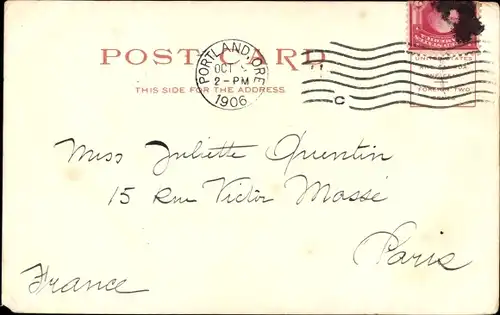 POST CARD
THIS SIDE FOR THE ADDRESS
PORTLAND, ORE.
OCT
2-PM
1906
C
UNITED STATES
FOREIGN TWO
Miss Juliette Quentin
15 Rue Victor Massé
Paris
France